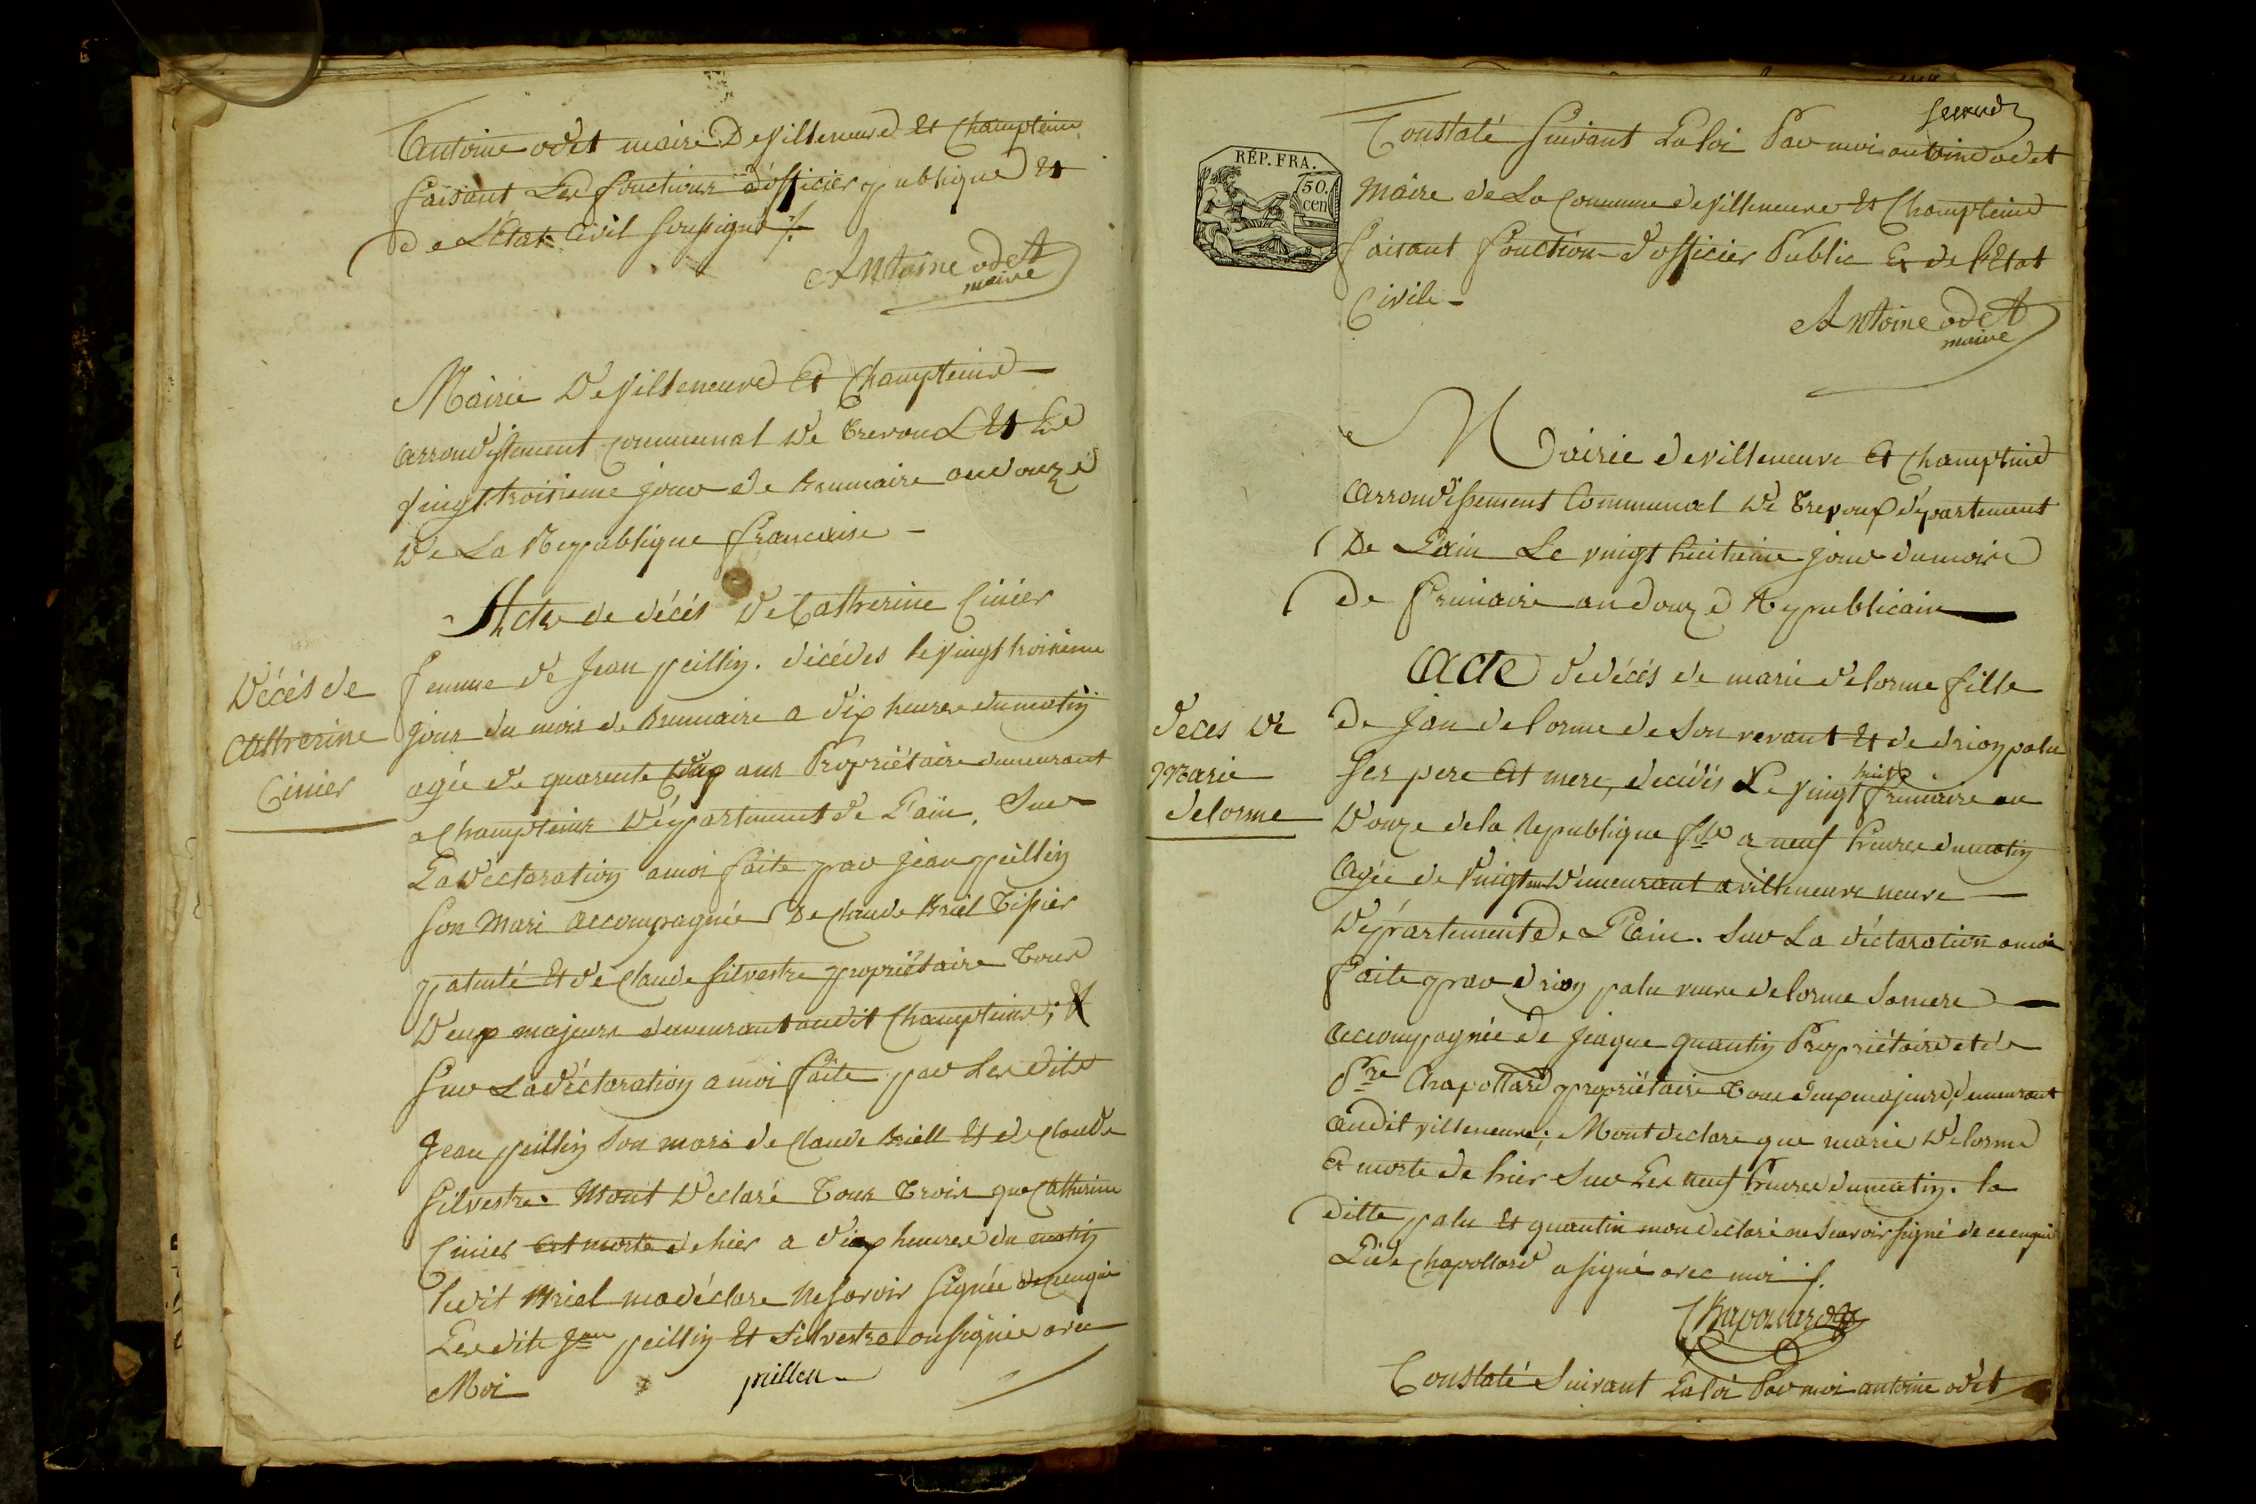 Antoine odet maire De villeneuve Et Champteins
faisant Les fonctions d'officier publique Et
de L'Etat Civil soussigné ./.
Antoine odet
maire
Mairie De villeneuve Et Champteins
arrondissement communal De Trevoux Et Le
vingt troisieme jour de brumaire an douze
De La Republique francaise -
Acte de décés De Catherine Cinier
Décés de
Catherine
Cinier
femme de Jean peillin . décédés le vingt troisieme
jour du mois de brumaire a dix heures du matin
agée de quarente ans Propriétaire demeurant
a Champteins Département de L'ain . Sur
La déclaration a moi faite par jean peillin
son Mari accompagnée De Claude briel Tissier
patenté Et de Claude silvestre propriétaire Tous
Deux majeurs demeurant audit Champteins ; Et
sur La déclaration a moi faite par Les dits
Jean peillin son mari de Claude briell Et de Claude
silvestre . Mont Declaré Tous Trois que Catherine
Cinier Est morte de hier a dix heures du matin
ledit briel ma déclare ne savoir signée de ce enquis
Les dits Jean peillin Et silvestre on signée avec
Moi
peillen
Constaté suivant La loi Par moi antoine odet
maire de La Commune de villeneuve Et Champteins
RÉP. FRA.
50.
cen
faisant fonction d'officier Public Et de l'Etat
Civile -
Antoine odet
maire
Mairie de villeneuve Et Champteins
arrondissement Communal De Trevoux département
De L'ain Le vingt huitieme jour du mois
De frimaire an douze Republicain
Acte de décés de marie delorme fille
Deces De
Marie
delorme
De jan delorme de son vevant Et de drion palu
ses pere Et mere, decédés Le vingt huit frimaire an
Douze de la Republique fse a neuf heures du matin
Agée de vingt ans Demeurant a villeneuve neuve
Département De L'ain . Sur La déclaration a moi
faite par drion palu veuve delorme sa mere
accompagnée de jaque quantin Propriétaire et de
Pre Chapollard propriétaire Tous deux majeurs, demeurant
audit villeneuve ; Mont declare que marie Delorme
Et morte de hier sur Les neuf heures du matin . la
ditte palu Et quantin mon declaré ne scavoir signé de ce enquis
Ledit Chapollard a signé avec moi ./.
Chapollard
Constaté suivant La loi Par moi antoine odet